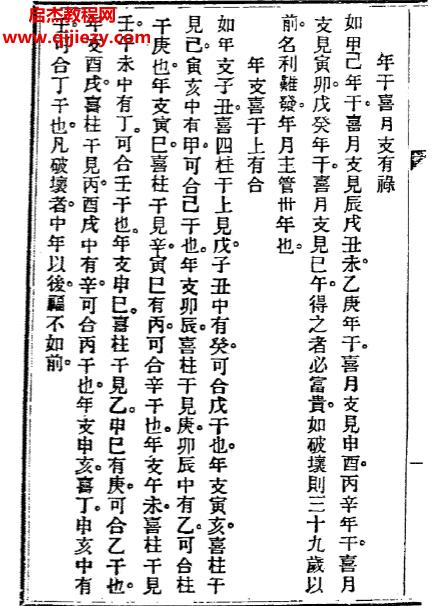 启杰教程网
www.qijiezy.com
年干喜月支有祿
如甲己年干喜月支見辰戌丑未。乙庚年干喜月支見申酉。丙辛年干。喜月
支見寅卯。戊癸年干。喜月支見巳午。得之者必富貴。如破壞則三十九歲以
前名利難發。年月主管卅年也。
年支喜干上有合
如年支子丑。喜四柱干上見戊。子丑中有癸。可合戊干也。年支寅亥。喜柱干
見己。寅亥中有甲。可合己干也。年支卯辰。喜柱干見庚。卯辰中有乙。可合柱
干庚也。年支寅巳。喜柱干見辛。寅巳有丙。可合辛干也。年支午未。喜柱干見
壬。午未中有丁。可合壬干也。年支申巳。喜柱干見乙。申巳有庚。可合乙干也。
年支酉戌。喜柱干見丙。酉戌中有辛。可合丙干也。年支申亥。喜丁。申亥中有
可合丁干也。凡破壞者。中年以後。福不如前。
一